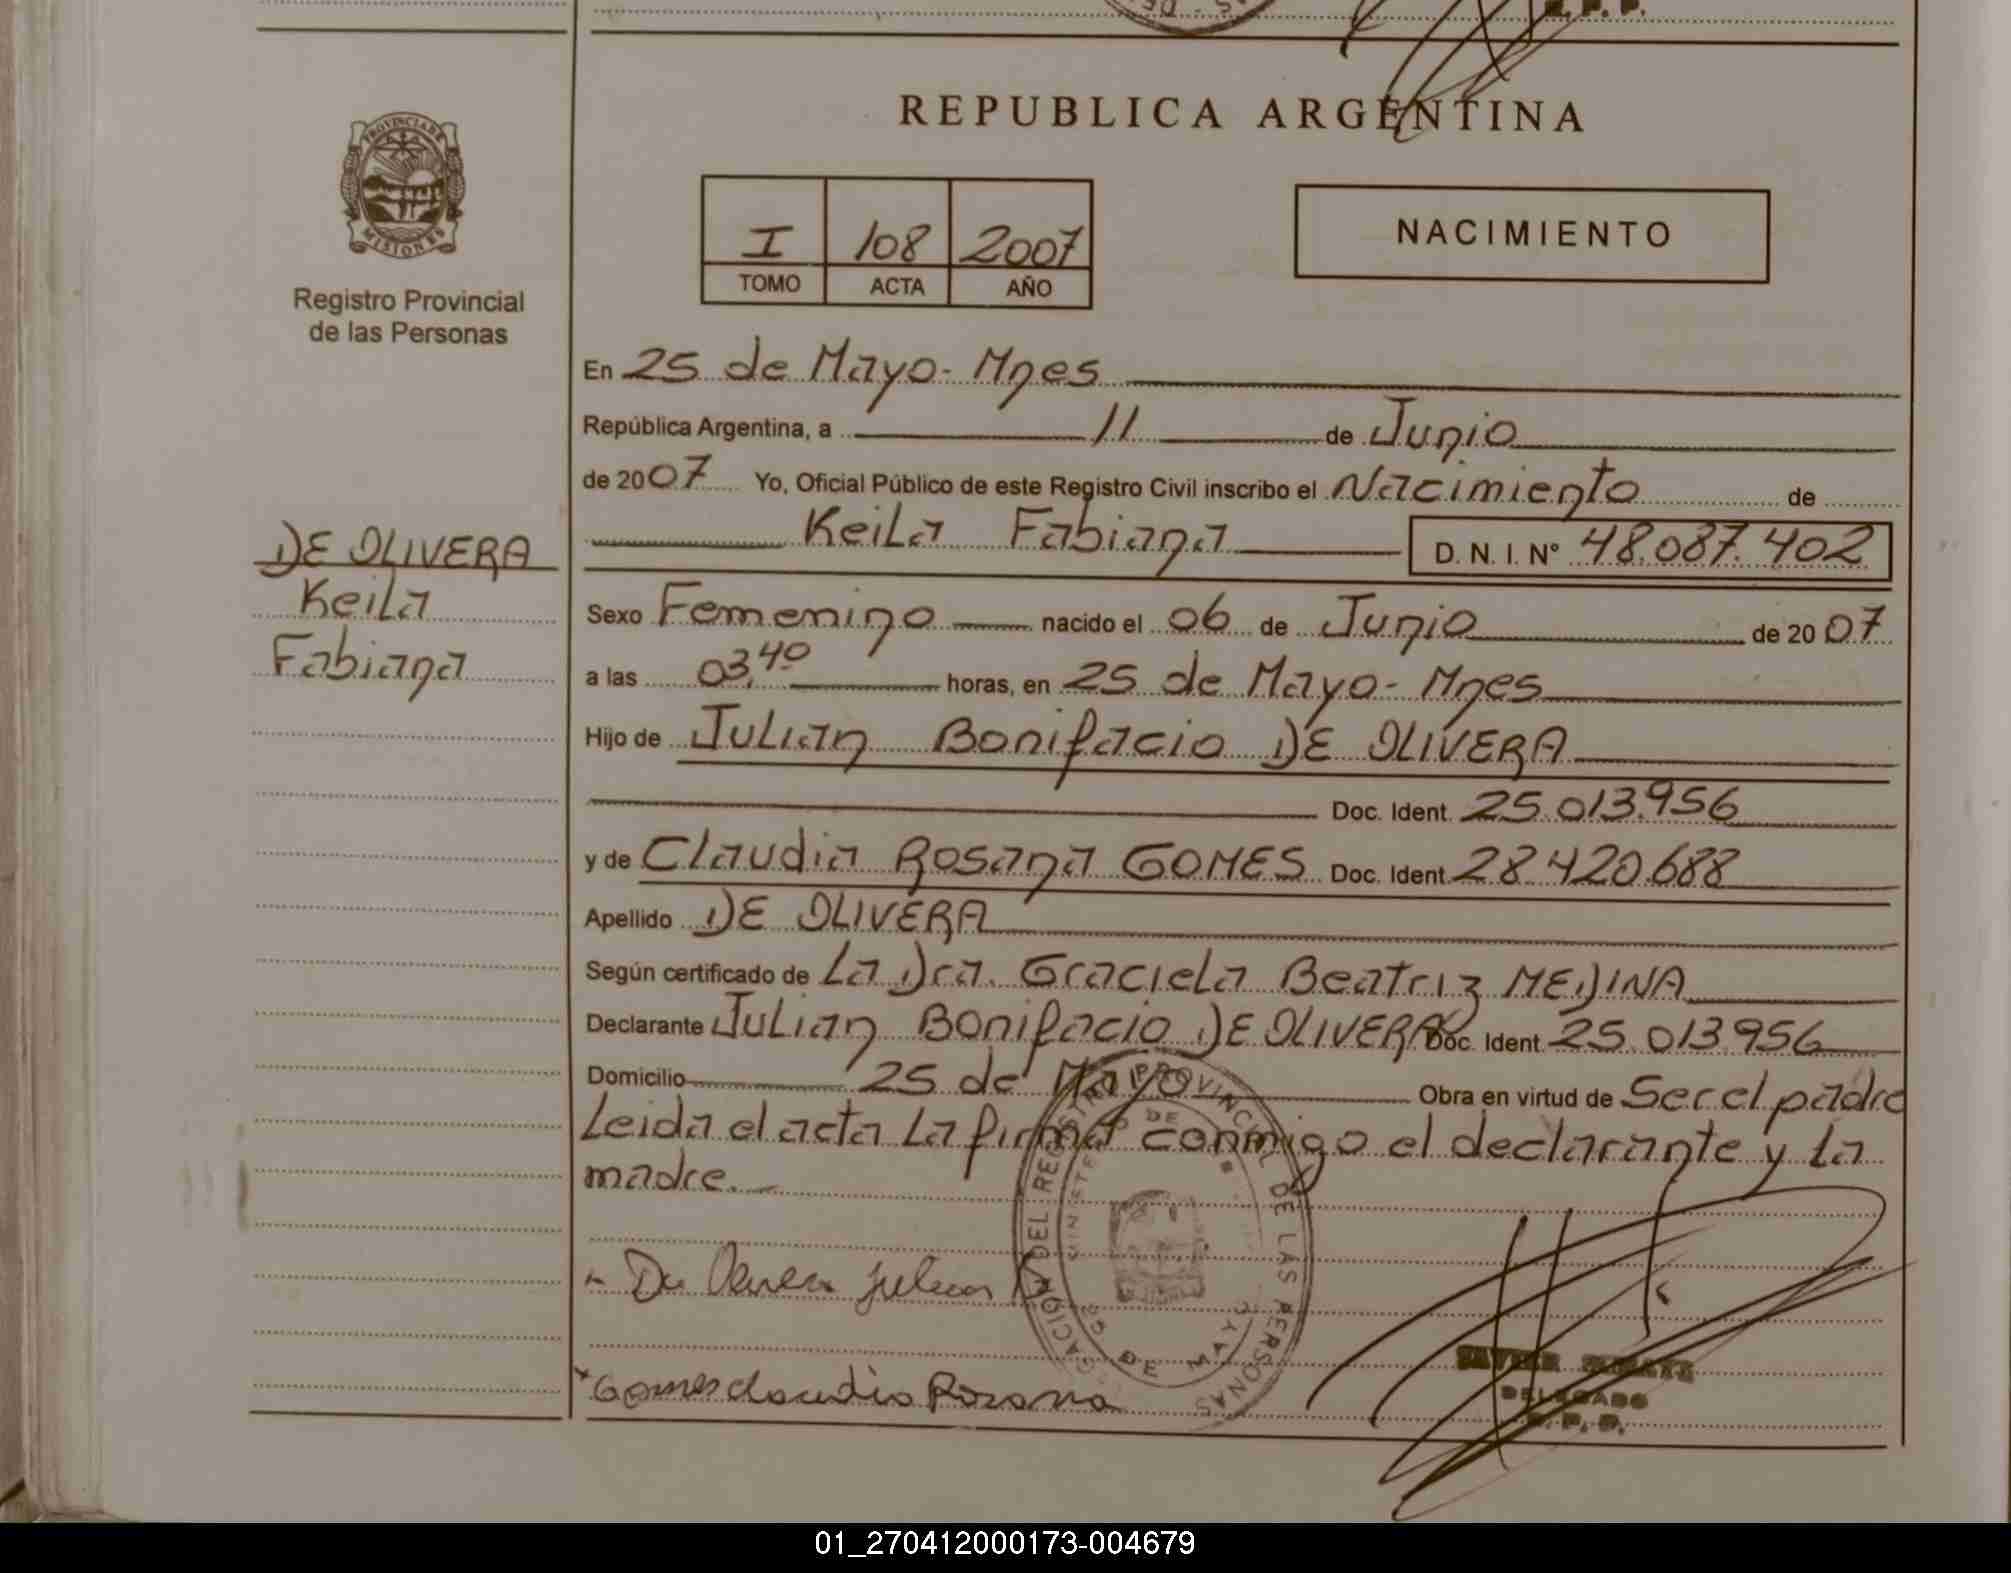 REPUBLICA ARGENTINA
PROVINCIA DE
MISIONES
Registro Provincial
de las Personas
I 108 2007
TOMO ACTA AÑO
NACIMIENTO
En 25 de Mayo- Mnes
República Argentina, a 11 de Junio
de 2007 Yo, Oficial Público de este Registro Civil inscribo el Nacimiento de
Keila Fabiana D. N. I. Nº 48.087.402
DE OLIVERA
Keila
Fabiana
Sexo Femenino nacido el 06 de Junio de 2007
a las 03,40 horas, en 25 de Mayo- Mnes
Hijo de Julian Bonifacio DE OLIVERA
Doc. Ident. 25.013.956
y de Claudia Rosana GOMES Doc. Ident. 28.420.688
Apellido DE OLIVERA
Según certificado de La Dra. Graciela Beatriz MEDINA
Declarante Julian Bonifacio DE OLIVERA Doc. Ident. 25.013.956
Domicilio 25 de Mayo Obra en virtud de Ser el padre
Leida el acta La firma conmigo el declarante y La
madre.
DEL REGISTRO PROVINCIAL DE LAS PERSONAS
25 DE MAYO
De Olivera Julian
Gomes Claudia Rosana
DELEGADO
01_270412000173-004679